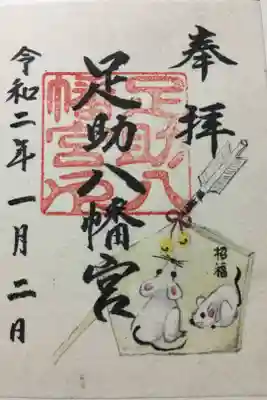 奉拝
足助八幡宮
令和二年一月二日
招福
足助八幡宮印